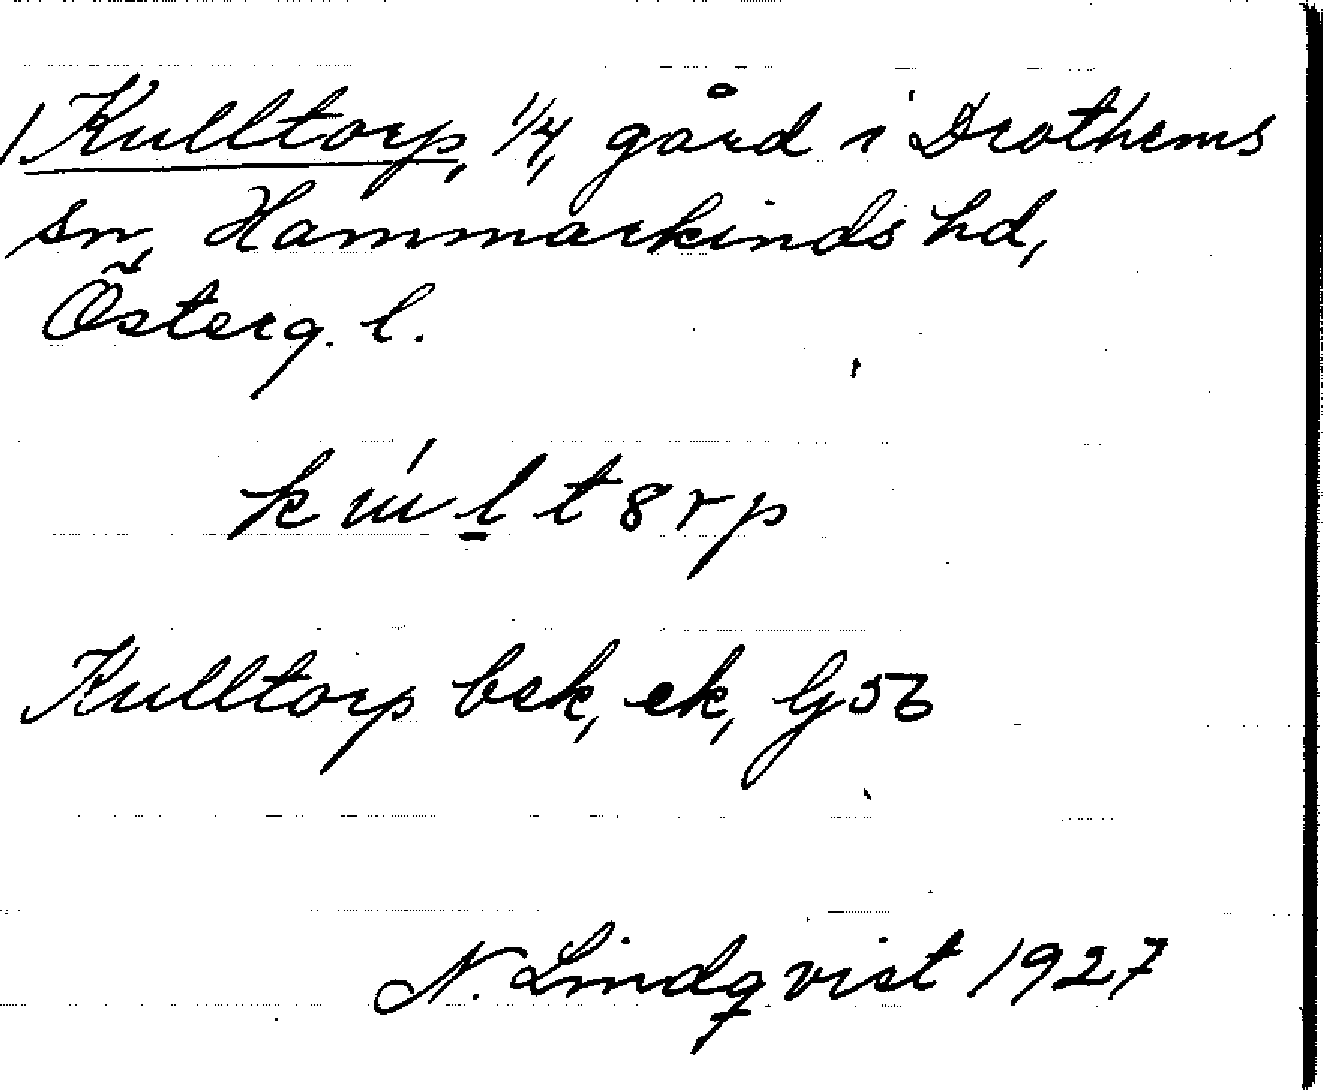 Kulltorp, 1/4, gård i Drothems
sn, Hammarkinds hd,
Österg. l.
kúlt 8rp
Kulltorp bek, ek, G56
N. Lindqvist 1927